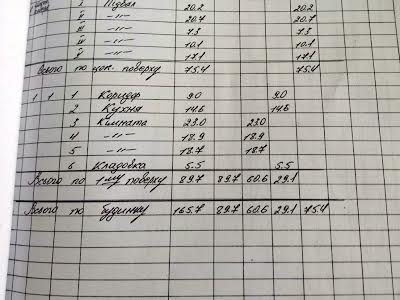 I Підвал 20.2 20.2
II -"- 20.7 20.7
III -"- 7.3 7.3
IV -"- 10.1 10.1
V -"- 17.1 17.1
Всього по цок. поверху 75.4 75.4
1 1 1 Коридор 9.0 9.0
2 Кухня 14.6 14.6
3 Кімната 23.0 23.0
4 -"- 18.9 18.9
5 -"- 18.7 18.7
6 Кладовка 5.5 5.5
Всього по 1му поверху 89.7 89.7 60.6 29.1
Всього по будинку 165.7 89.7 60.6 29.1 75.4